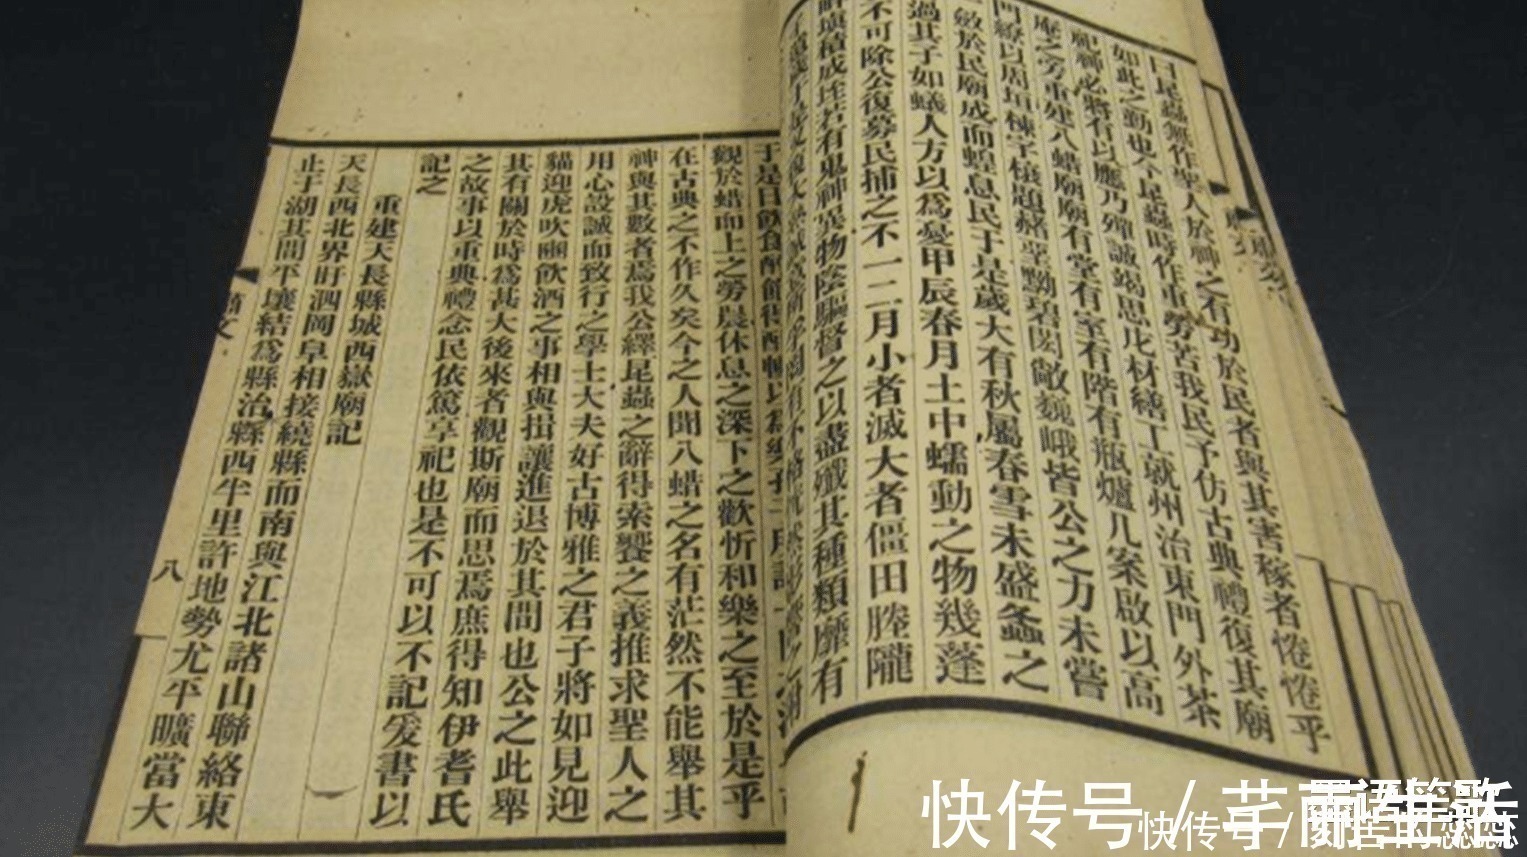 曰昆蟲無作聖人於神之有功於民者與其害稼者惓惓乎
如此之勤也今昆蟲時作重勞苦我民予仿古典禮復其廟
祀神必將有以應乃殫誠竭思庀材繕工就州治東門外茶
庵之旁重建八蜡廟廟有堂有室有階有瓶爐几案啟以高
門繚以周垣棟宇榱題赭堊黝碧閎敞巍峨皆公之力未嘗
斂於民廟成而蝗息民于是歲大有秋屬春雪未盛螽之
過其子如蟻人方以為憂甲辰春月土中蠕動之物幾蓬
不可除公復募民捕之不一二月小者滅大者僵田塍隴
填積成垤若有鬼神異物陰驅督之以盡殲其種類靡有
于是日飲食酣飽得醉輒以為樂
觀於蜡而上之勞農休息之深下之歡忻和樂之至於是乎
在古典之不作久矣今之人聞八蜡之名有茫然不能舉其
神與其數者焉我公繹昆蟲之辭得索饗之義推求聖人之
用心設誠而致行之學士大夫好古博雅之君子將如見迎
貓迎虎吹豳飲酒之事相與揖讓進退於其間也公之此舉
其有關於時為甚大後來者觀斯廟而思焉庶得知伊耆氏
之故事以重典禮念民依篤享祀也是不可以不記爰書以
記之
重建天長縣城西嶽廟記
天長西北界盱泗岡阜相接繞縣而南與江北諸山聯絡東
止于湖其間平壤結為縣治縣西半里許地勢尤平曠當大
八
快传号/芋雨生活
快传号/刻苦的悠悠